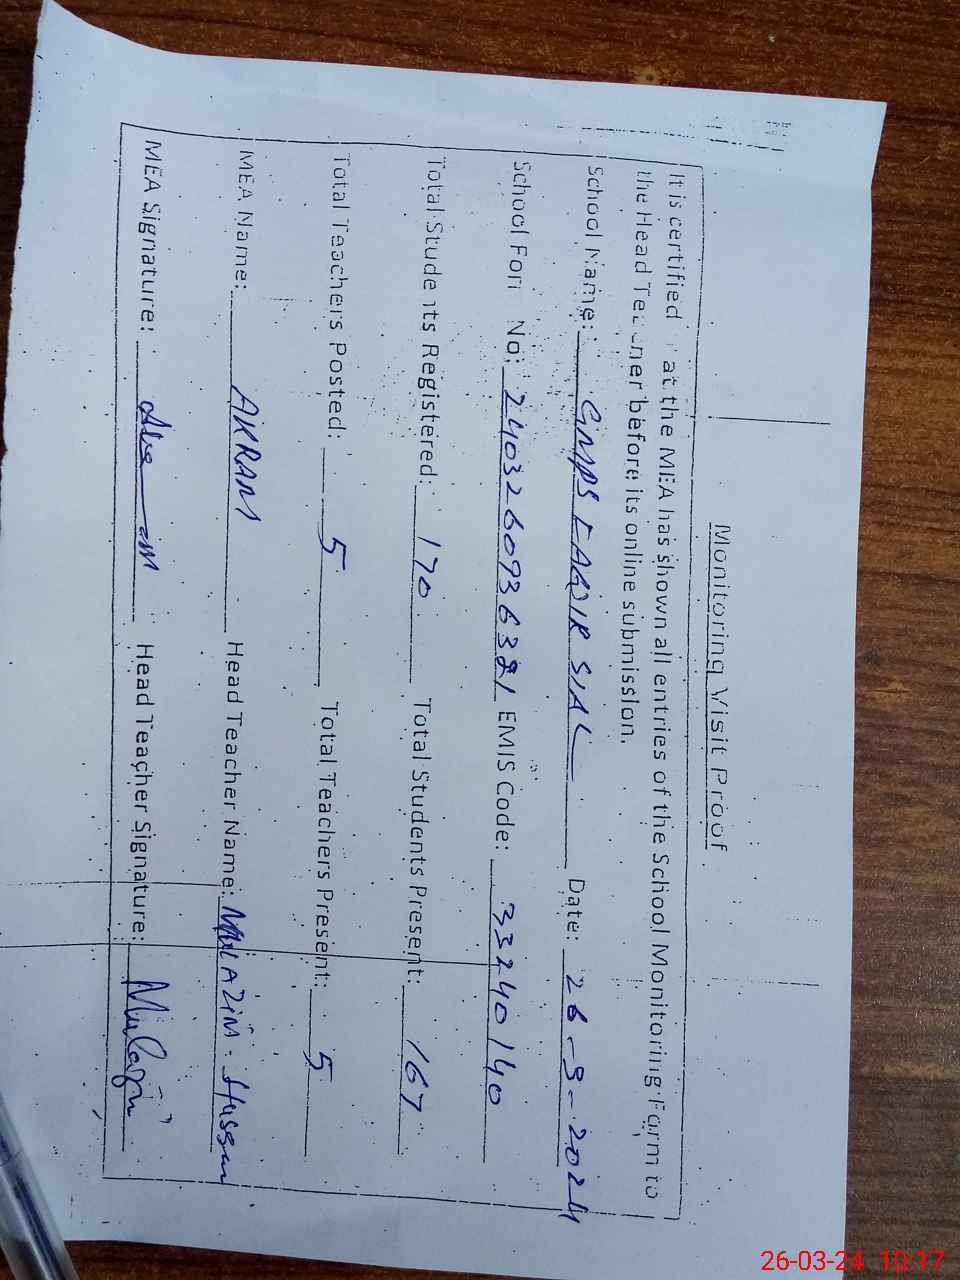 Monitoring Visit Proof
It is certified at the MEA has shown all entries of the School Monitoring Form to
the Head Teacher before its online submission.
School Name: GMPS FAQIR SIAL Date: 26-3-2024
School Form No: EMIS Code: 33240140
Total Students Registered: 170 Total Students Present: 167
Total Teachers Posted: 5 Total Teachers Present: 5
MEA Name: AKRAM Head Teacher Name: MULAZIM Hussain
MEA Signature: Head Teacher Signature: Mulazim
26-03-24 10:17